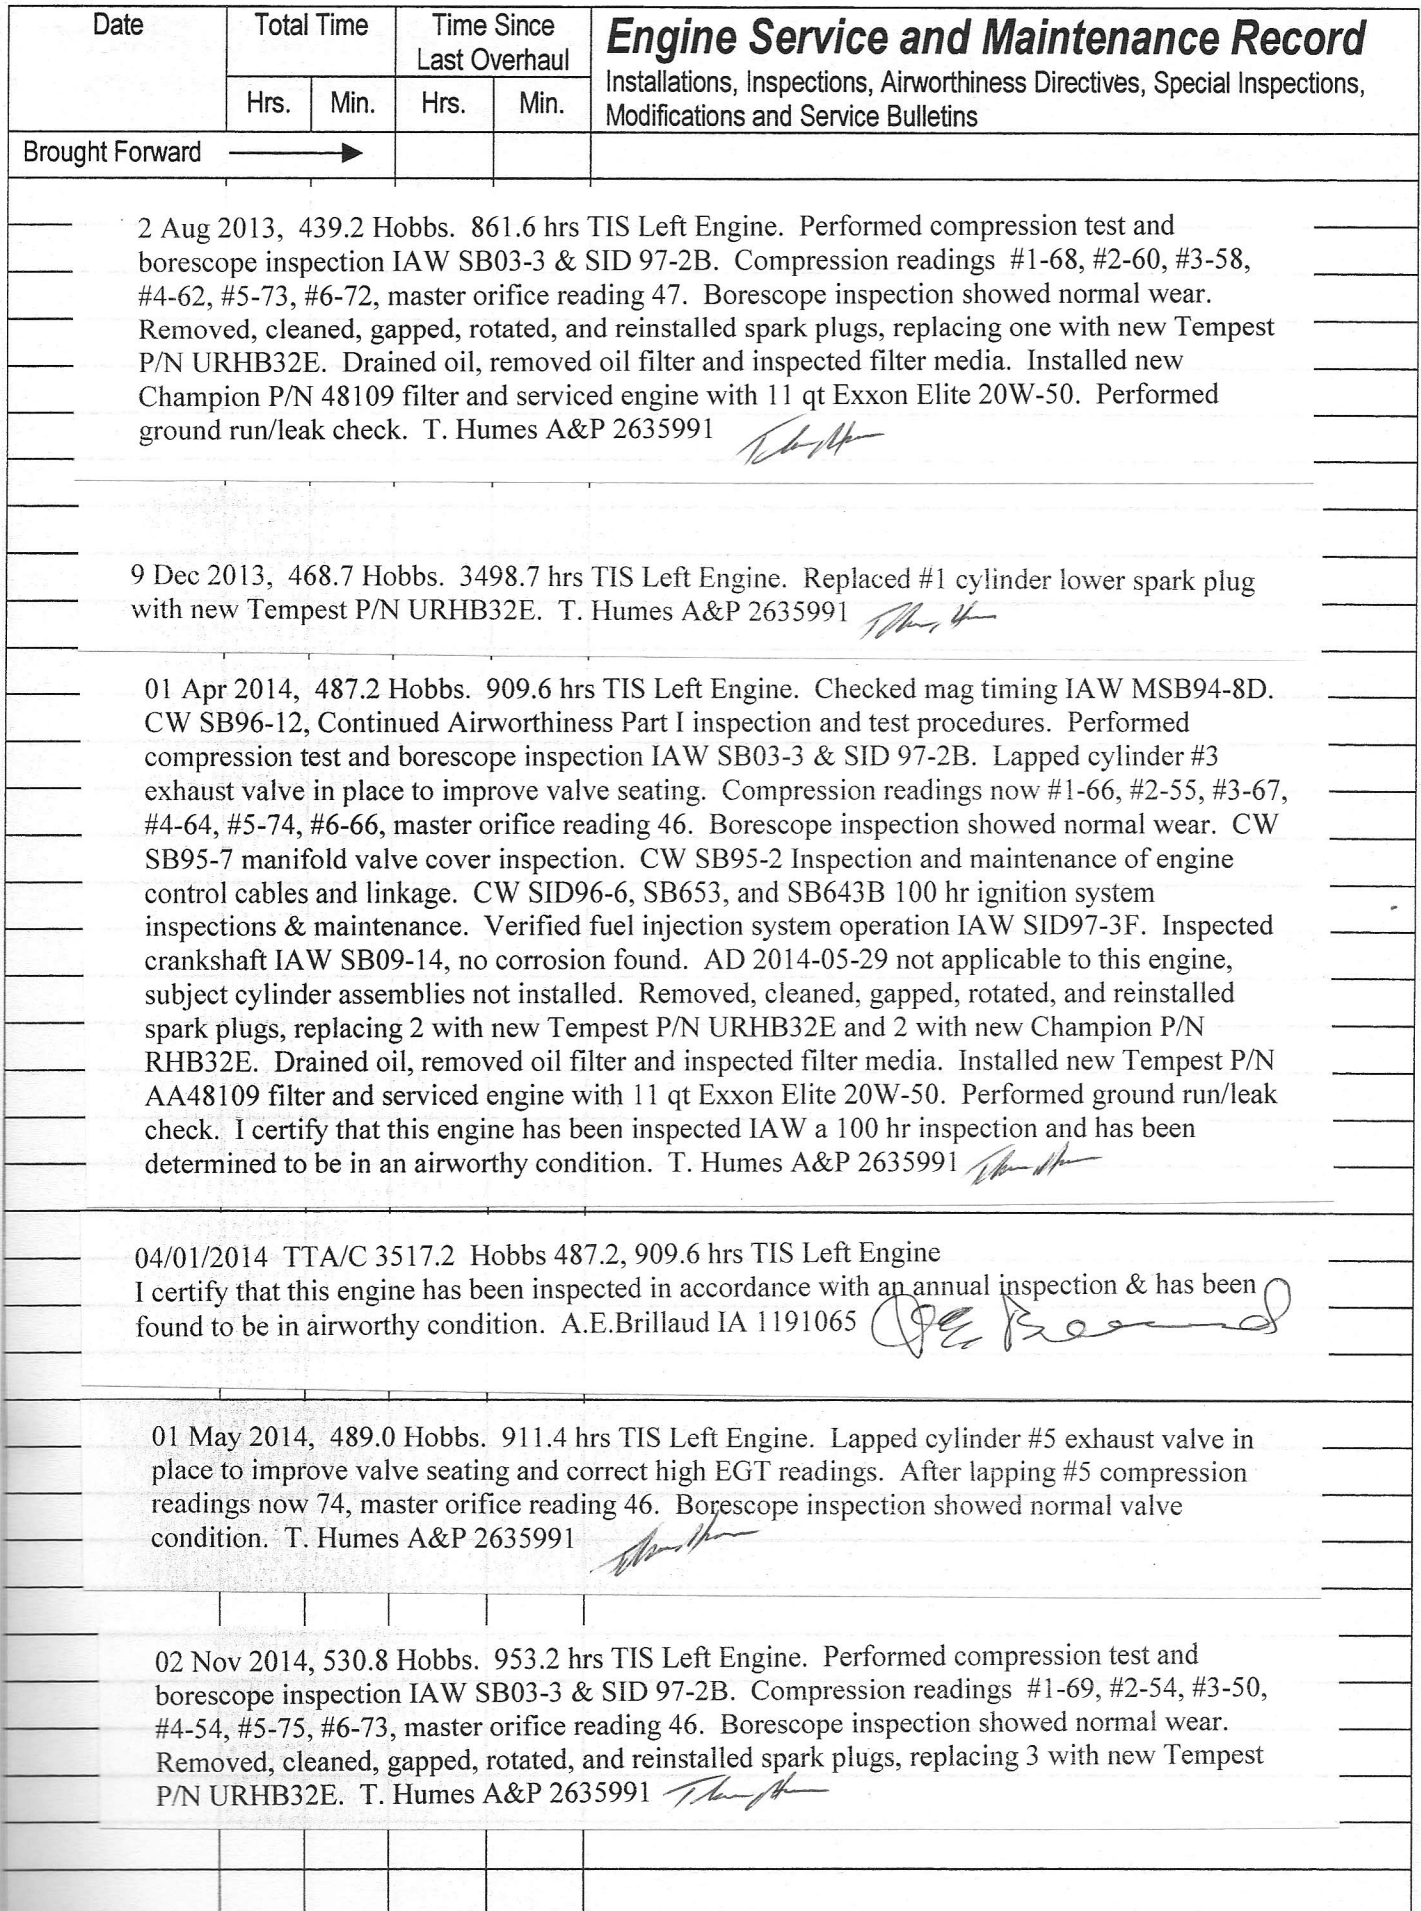 Date
Total Time
Time Since
Last Overhaul
Engine Service and Maintenance Record
Installations, Inspections, Airworthiness Directives, Special Inspections,
Modifications and Service Bulletins
Hrs.
Min.
Hrs.
Min.
Brought Forward
2 Aug 2013, 439.2 Hobbs. 861.6 hrs TIS Left Engine. Performed compression test and
borescope inspection IAW SB03-3 & SID 97-2B. Compression readings #1-68, #2-60, #3-58,
#4-62, #5-73, #6-72, master orifice reading 47. Borescope inspection showed normal wear.
Removed, cleaned, gapped, rotated, and reinstalled spark plugs, replacing one with new Tempest
P/N URHB32E. Drained oil, removed oil filter and inspected filter media. Installed new
Champion P/N 48109 filter and serviced engine with 11 qt Exxon Elite 20W-50. Performed
ground run/leak check. T. Humes A&P 2635991
9 Dec 2013, 468.7 Hobbs. 3498.7 hrs TIS Left Engine. Replaced #1 cylinder lower spark plug
with new Tempest P/N URHB32E. T. Humes A&P 2635991
01 Apr 2014, 487.2 Hobbs. 909.6 hrs TIS Left Engine. Checked mag timing IAW MSB94-8D.
CW SB96-12, Continued Airworthiness Part I inspection and test procedures. Performed
compression test and borescope inspection IAW SB03-3 & SID 97-2B. Lapped cylinder #3
exhaust valve in place to improve valve seating. Compression readings now #1-66, #2-55, #3-67,
#4-64, #5-74, #6-66, master orifice reading 46. Borescope inspection showed normal wear. CW
SB95-7 manifold valve cover inspection. CW SB95-2 Inspection and maintenance of engine
control cables and linkage. CW SID96-6, SB653, and SB643B 100 hr ignition system
inspections & maintenance. Verified fuel injection system operation IAW SID97-3F. Inspected
crankshaft IAW SB09-14, no corrosion found. AD 2014-05-29 not applicable to this engine,
subject cylinder assemblies not installed. Removed, cleaned, gapped, rotated, and reinstalled
spark plugs, replacing 2 with new Tempest P/N URHB32E and 2 with new Champion P/N
RHB32E. Drained oil, removed oil filter and inspected filter media. Installed new Tempest P/N
AA48109 filter and serviced engine with 11 qt Exxon Elite 20W-50. Performed ground run/leak
check. I certify that this engine has been inspected IAW a 100 hr inspection and has been
determined to be in an airworthy condition. T. Humes A&P 2635991
04/01/2014 TTA/C 3517.2 Hobbs 487.2, 909.6 hrs TIS Left Engine
I certify that this engine has been inspected in accordance with an annual inspection & has been
found to be in airworthy condition. A.E.Brillaud IA 1191065
01 May 2014, 489.0 Hobbs. 911.4 hrs TIS Left Engine. Lapped cylinder #5 exhaust valve in
place to improve valve seating and correct high EGT readings. After lapping #5 compression
readings now 74, master orifice reading 46. Borescope inspection showed normal valve
condition. T. Humes A&P 2635991
02 Nov 2014, 530.8 Hobbs. 953.2 hrs TIS Left Engine. Performed compression test and
borescope inspection IAW SB03-3 & SID 97-2B. Compression readings #1-69, #2-54, #3-50,
#4-54, #5-75, #6-73, master orifice reading 46. Borescope inspection showed normal wear.
Removed, cleaned, gapped, rotated, and reinstalled spark plugs, replacing 3 with new Tempest
P/N URHB32E. T. Humes A&P 2635991